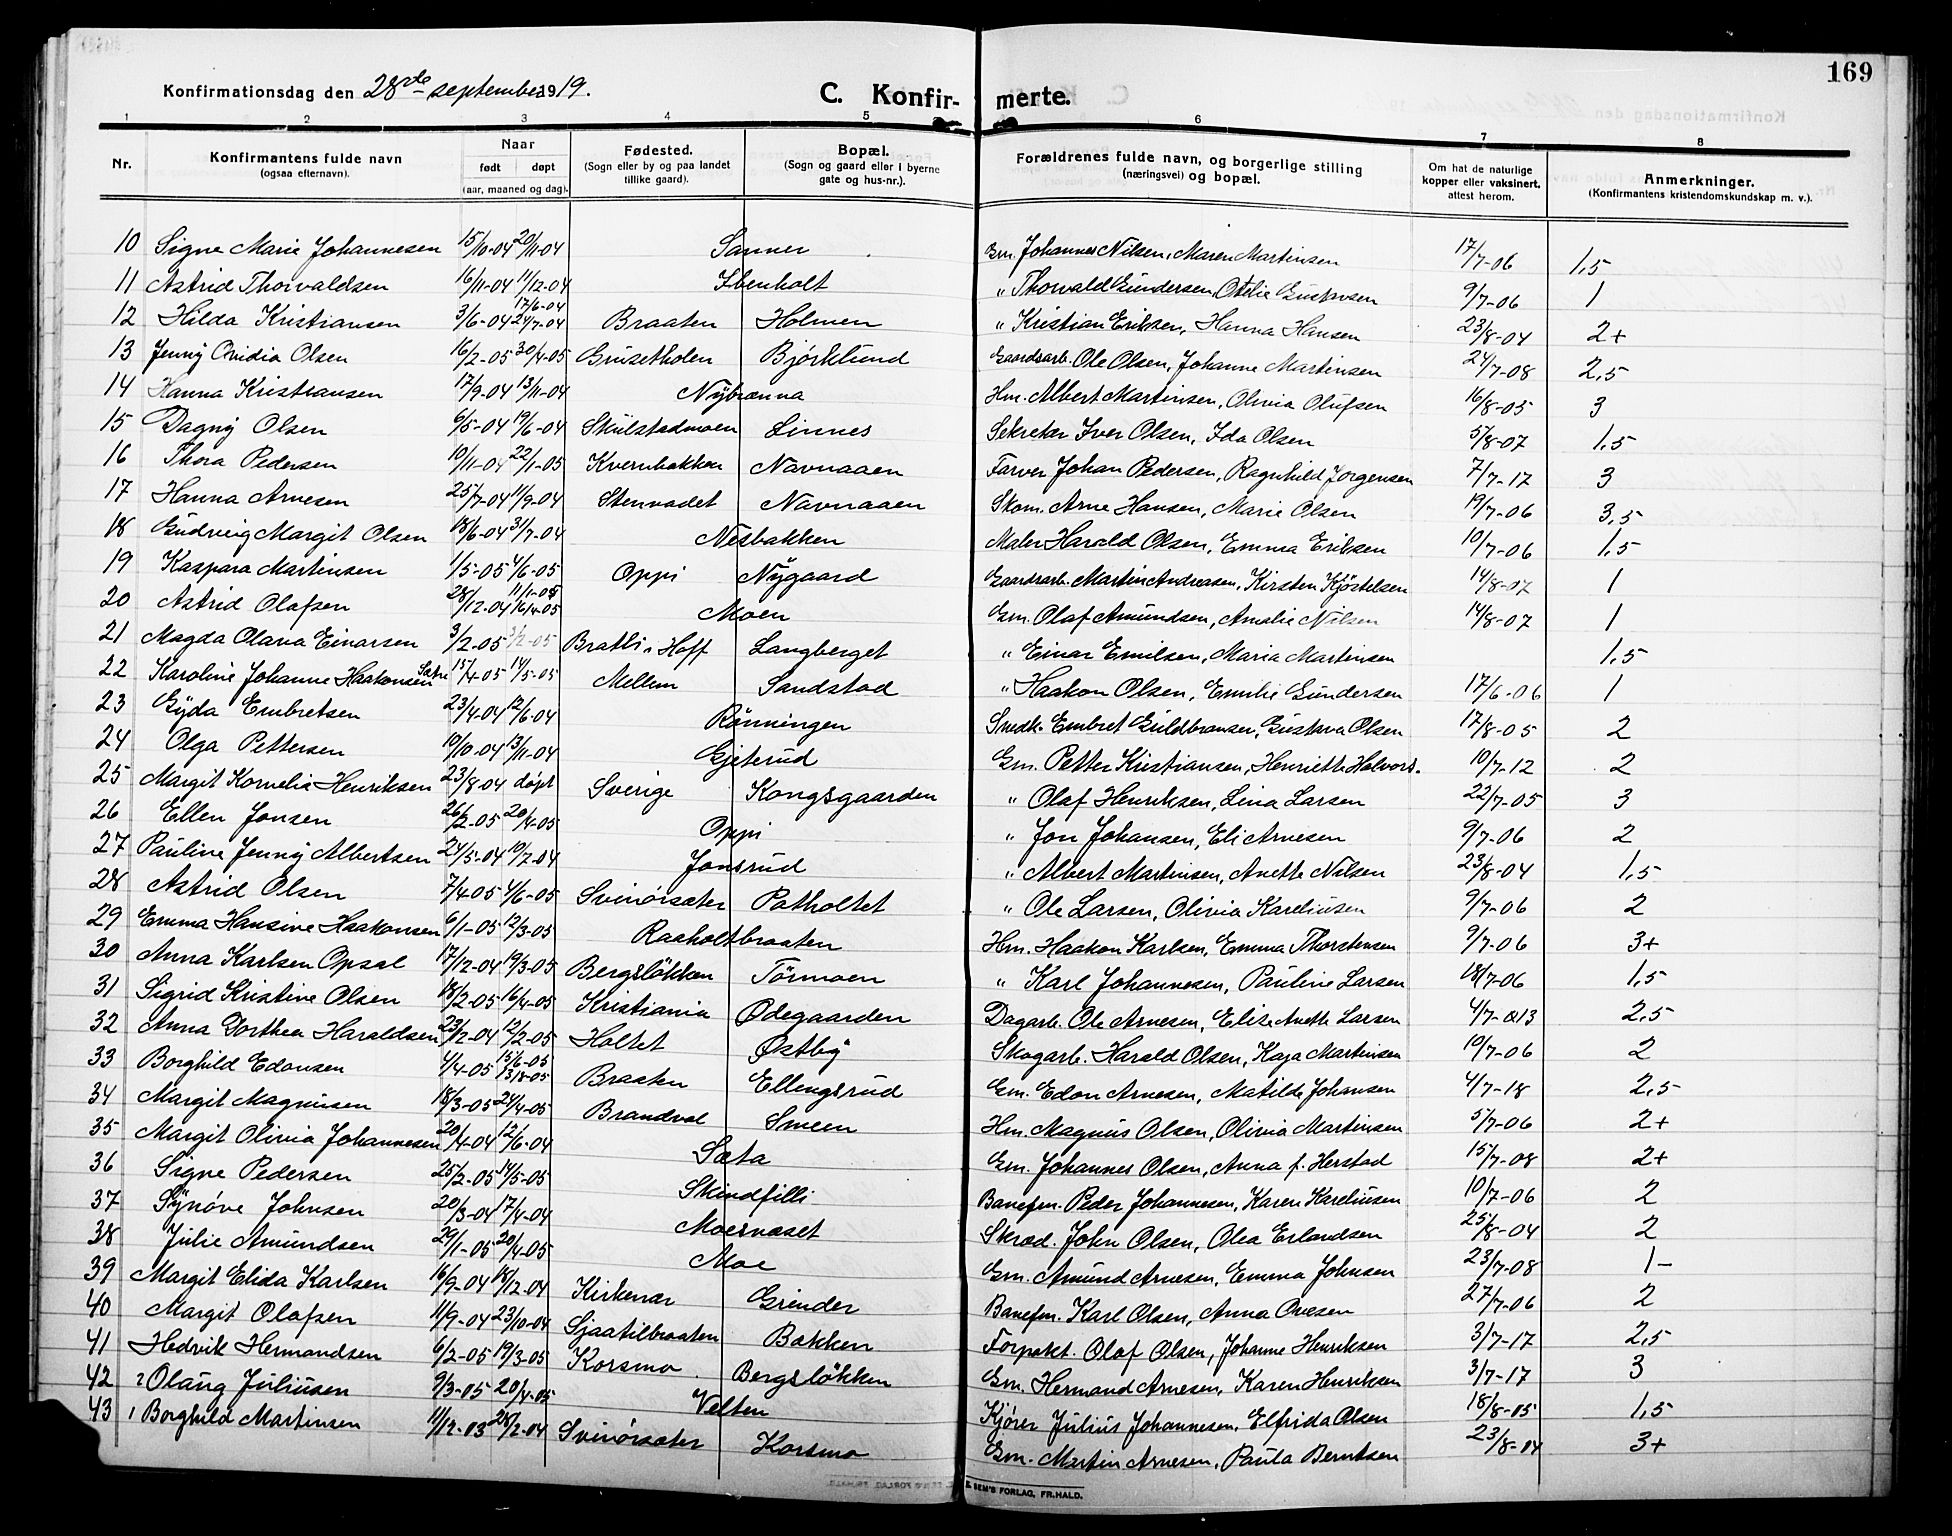 169
Konfirmationsdag den 28de september 1919.
C. Konfir- merte.
1 2 3 4 5 6 7 8
Nr. Konfirmantens fulde navn (ogsaa efternavn). Naar født døpt (aar, maaned og dag). Fødested. (Sogn eller by og paa landet tillike gaard). Bopæl. (Sogn og gaard eller i byerne gate og hus-nr.). Forældrenes fulde navn, og borgerlige stilling (næringsvei) og bopæl. Om hat de naturlige kopper eller vaksinert. attest herom. Anmerkninger. (Konfirmantens kristendomskundskap m. v.).
10 Signe Marie Johannesen 15/10-04 20/11-04 Sanner Gm. Johannes Nilsen, Maren Martinsen 17/7-06 1,5
11 Astrid Thorvaldsen 16/11-04 11/12-04 Ibenholt " Thorvald Gundersen, Otelie Gustavsen 9/7-06 1
12 Hilda Kristiansen 3/6-04 17/6-04 24/7-04 Braaten Holmen " Kristian Eriksen, Hanna Hansen 23/8-04 2+
13 Jenny Ovidia Olsen 16/2-05 30/4-05 Grusetholen Björklund Gaardsarb. Ole Olsen, Johanne Martinsen 24/7-08 2,5
14 Hanna Kristiansen 17/9-04 13/11-04 Nybrænna Hm. Albert Martinsen, Olivia Olufsen 16/8-05 3
15 Dagny Olsen 6/5-04 19/6-04 Skulstadmoen Linnes Sekretær Iver Olsen, Ida Olsen 5/8-07 1,5
16 Thora Pedersen 10/11-04 22/1-05 Kvernbakken Navnaaen Farver Johan Pedersen, Ragnhild Jorgensen 7/7-17 3
17 Hanna Arnesen 25/7-04 11/9-04 Stennadet Navnaaen Skom. Arne Hansen, Marie Olsen 19/7-06 3,5
18 Gudveig Margit Olsen 18/6-04 31/7-04 Nesbakken Maler Harald Olsen, Emma Eriksen 10/7-06 1,5
19 Kaspara Martinsen 1/5-05 4/6-05 Oppi Nygaard Gaardsarb. Martin Andreasen, Kirsten Kjöstelsen 14/8-07 1
20 Astrid Olafsen 28/12-04 11/1-05 16/4-05 Moen Gm. Olaf Amundsen, Amalie Nilsen 14/8-07 1
21 Magda Olava Einarsen 3/2-05 3/2-05 Bratli i Hoff Langberget " Einar Emilsen, Maria Martinsen 1,5
22 Karoline Johanne Haakonsen Sætre 15/4-05 14/5-05 Mellem Sandstad " Haakon Olsen, Emilie Gundersen 17/6-06 1
23 Gyda Embretsen 23/4-04 12/6-04 Rönningen Smedk. Embret Guldbransen, Gustava Olsen 17/8-05 2
24 Olga Pettersen 19/10-04 13/11-04 Gjeterud Gm. Petter Kristiansen, Henriette Halvors. 10/7-12 2
25 Margit Kornelia Henriksen 23/8-04 döpt Sverige Kongsgaarden " Olaf Henriksen, Lina Larsen 22/7-05 3
26 Ellen Jonsen 26/2-05 20/4-05 Oppi " Jon Johansen, Eli Arnesen 9/7-06 2
27 Pauline Jenny Albertsen 24/5-04 10/7-04 Jonsrud " Albert Martinsen, Anette Nilsen 23/8-04 1,5
28 Astrid Olsen 7/4-05 4/6-05 Svinörsæter Patholtet " Ole Larsen, Olivia Kareliusen 9/7-06 2
29 Emma Hansine Haakonsen 6/1-05 12/3-05 Raaholtbraaten Hm. Haakon Karlsen, Emma Thorstensen 9/7-06 3+
30 Anna Karlsen Opsal 17/12-04 19/3-05 Bergslökken Törmoen " Karl Johannesen, Pauline Larsen 18/7-06 1,5
31 Sigrid Kristine Olsen 18/2-05 16/4-05 Kristiania Ødegaarden Dagarb. Ole Arnesen, Elise Anette Larsen 4/7-13 2,5
32 Anna Dorthea Haraldsen 23/12-04 12/2-05 Holtet Østby Skogarb. Harald Olsen, Kaja Martinsen 19/7-06 2
33 Borghild Edonsen 4/4-05 15/6-05 13/8-05 Braaten Ellengsrud Gm. Edon Arnesen, Matilde Johansen 4/7-18 2,5
34 Margit Magnusen 18/3-05 24/4-05 Brandval Smeen Hm. Magnus Olsen, Olivia Martinsen 5/7-06 2+
35 Margit Olivia Johannesen 20/4-04 12/6-04 Sæta Gm. Johannes Olsen, Anna f. Herstad 15/7-08 2+
36 Signe Pedersen 25/2-05 14/5-05 Skindfilli Banefm. Peder Johannesen, Karen Kareliusen 10/7-06 2
37 Synöve Johnsen 20/3-04 17/4-04 Moesnæset Skræd. John Olsen, Olea Erlandsen 25/8-04 2
38 Julie Amundsen 29/1-05 20/4-05 Moe Gm. Amund Arnesen, Emma Johnsen 23/7-08 1-
39 Margit Elida Karlsen 16/9-04 18/12-04 Kirkenær Grinder Banefm. Karl Olsen, Anna Ovesen 27/7-06 2
40 Margit Olafsen 11/9-04 23/10-04 Sjaatilbraaten Bakken Forpakt. Olaf Olsen, Johanne Henriksen 3/7-17 2,5
41 Hedvik Hermandsen 6/2-05 19/3-05 Korsmo Bergslökken Gm. Hermand Arnesen, Karen Henriksen 3/7-17 3
42 2 Olaug Juliusen 9/3-05 20/4-05 Velten Kjörer Julius Johannesen, Elfrida Olsen 18/8-05 1,5
43 1 Borghild Martinsen 11/12-03 28/2-04 Svinörsæter Korsmo Gm. Martin Arnesen, Paula Berntsen 23/8-04 3+
SEM'S FORLAG, FR.HALD.